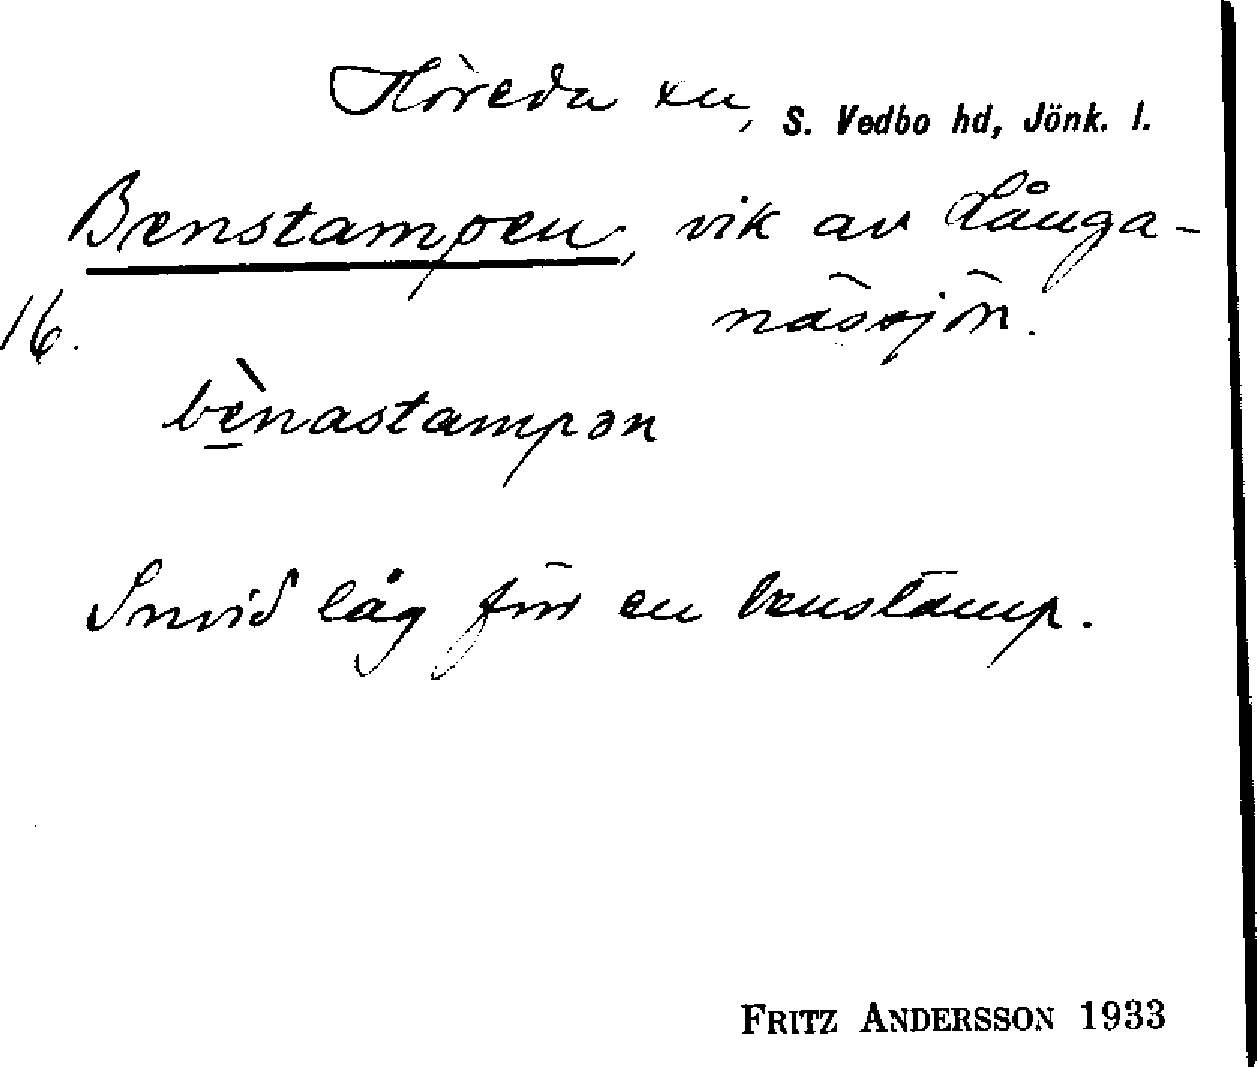 Höreda sn, S. Vedbo hd, Jönk. l.
Benstampen, vik av Långa-
nässjön.
16.
bènastampən
Invid låg förr en benstamp.
FRITZ ANDERSSON 1933